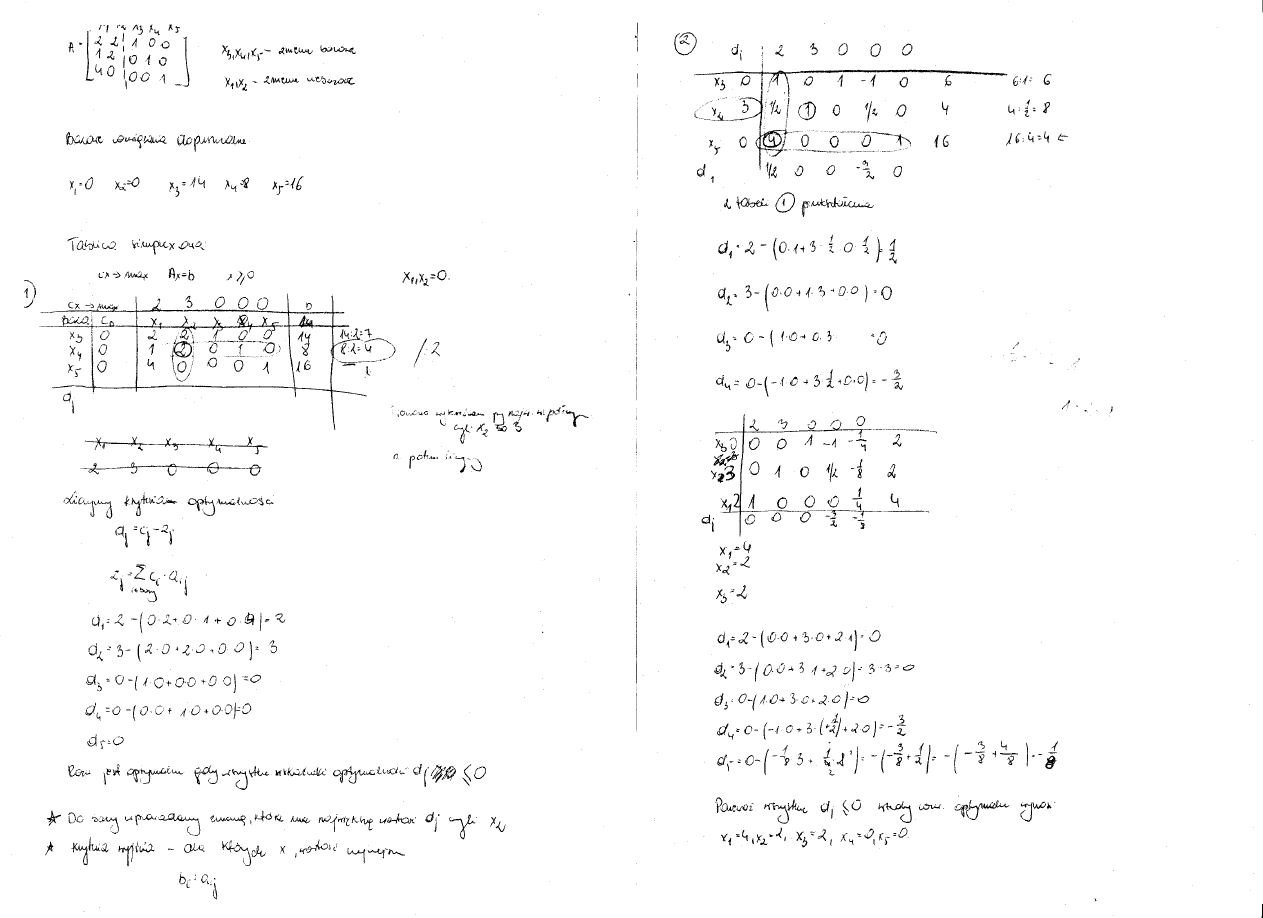 x₁ x₂ x₃ x₄ x₅
A = [ 2 2 1 0 0
1 2 0 1 0
4 0 0 0 1 ]
x₃, x₄, x₅ - zmienne bazowe
x₁, x₂ - zmienne niebazowe
Bazowe rozwiązanie dopuszczalne
x₁=0 x₂=0 x₃=14 x₄=8 x₅=16
Tablica simpleksowa
cx → max Ax=b x≥0
x₁, x₂=0.
1)
cx → max 2 3 0 0 0 b
Baza c₀ x₁ x₂ x₃ x₄ x₅
x₃ 0 2 2 1 0 0 14 14:2=7
x₄ 0 1 2 0 1 0 8 8:2=4 /:2
x₅ 0 4 0 0 0 1 16 —
dj
czyli x₂ 3
x₁ x₂ x₃ x₄ x₅
2 3 0 0 0
a potem
Liczymy kryterium optymalności
dj = cj - zj
zj = Σ ci · aij
i∈bazy
d₁=2-(0·2+0·1+0·4)=2
d₂=3-(2·0+2·0+0·0)=3
d₃=0-(1·0+0·0+0·0)=0
d₄=0-(0·0+1·0+0·0)=0
d₅=0
Rozw jest optymalne gdy wszystkie wskaźniki optymalności dj ≤0
★ Do bazy wprowadzamy zmienną, która ma największą wartość dj czyli x₂
★ Kryteria wyjścia - dla których x, wartość
bi : aij
2
dj 2 3 0 0 0
x₃ 0 1 0 1 -1 0 6 6:1=6
x₂ 3 1/2 1 0 1/2 0 4 4:1/2=8
x₅ 0 4 0 0 0 1 16 16:4=4 ←
dj 1/2 0 0 -3/2 0
2 1
d₁=2-(0·1+3·1/2 0·1/2)=1/2
d₂=3-(0·0+1·3+0·0)=0
d₃=0-(1·0+0·3 =0
d₄=0-(-1·0+3·1/2+0·0)=-3/2
2 3 0 0 0
x₃ 0 0 0 1 -1 -1/4 2
x₂ 3 0 1 0 1/2 -1/8 2
x₁ 2 1 0 0 0 1/4 4
dj 0 0 0 -3/2 -1/8
x₁=4
x₂=2
x₃=2
d₁=2-(0·0+3·0+2·1)=0
d₂=3-(0·0+3·1+2·0)=3-3=0
d₃=0-(1·0+3·0+2·0)=0
d₄=0-(-1·0+3·(+1/2)+2·0)=-3/2
d₅=0-(-1/8·3+1/4·2)=-(-3/8+1/2)=-(-3/8+4/8)=-1/8
Ponieważ wszystkie dj ≤0 wtedy rozw. optymalne wynosi
x₁=4, x₂=2, x₃=2, x₄=0, x₅=0